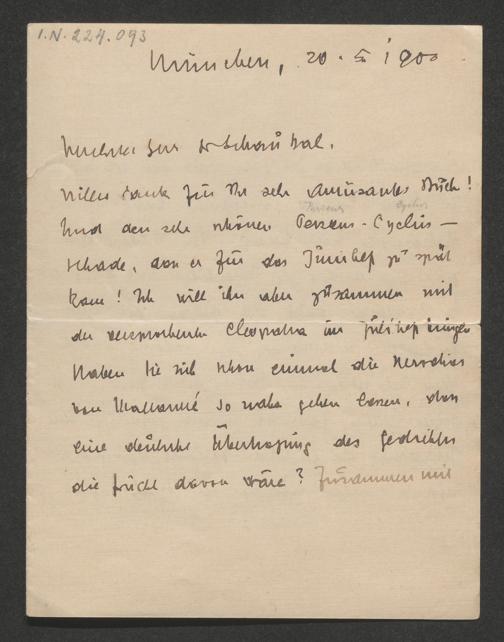 I.N. 224.093
München, 20. 5. 1900
Verehrter Herr Dr Schaukal,
Vielen Dank für Ihr sehr amüsantes Buch!
Und den sehr schönen Perseus-Cyclus —
Perseus Cyclus
schade, dass er für das Juniheft zu spät
kam! Ich will ihn aber zusammen mit
der versprochenen Cleopatra im Juliheft bringen
Haben Sie sich schon einmal die Herodias
von Mallarmé so nahe gehen lassen, dass
eine deutsche Übertragung des Gedichtes
die Frucht davon wäre? Zusammen mit